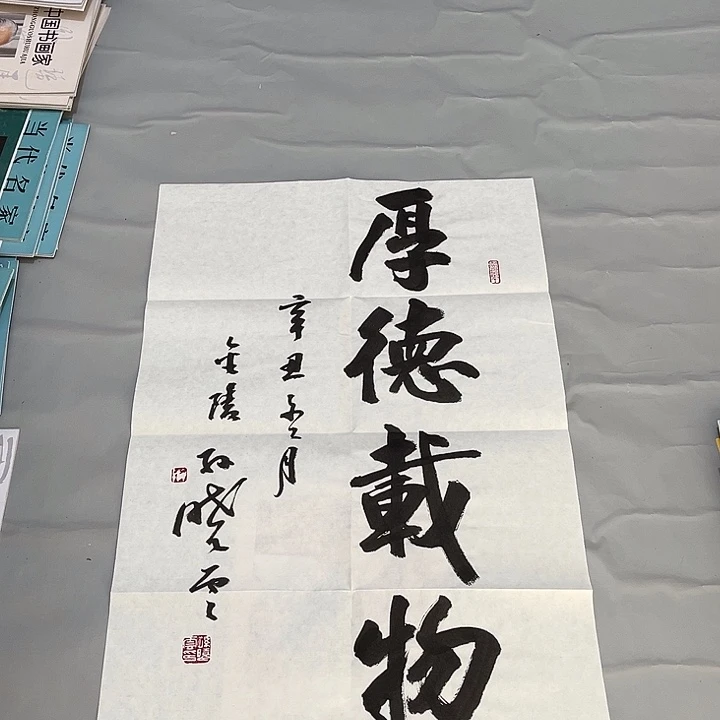 厚德載物
辛丑冬月
金陵孙晓云
中国书画家
ZHONGGUOSHUHUAJIA
当代名家